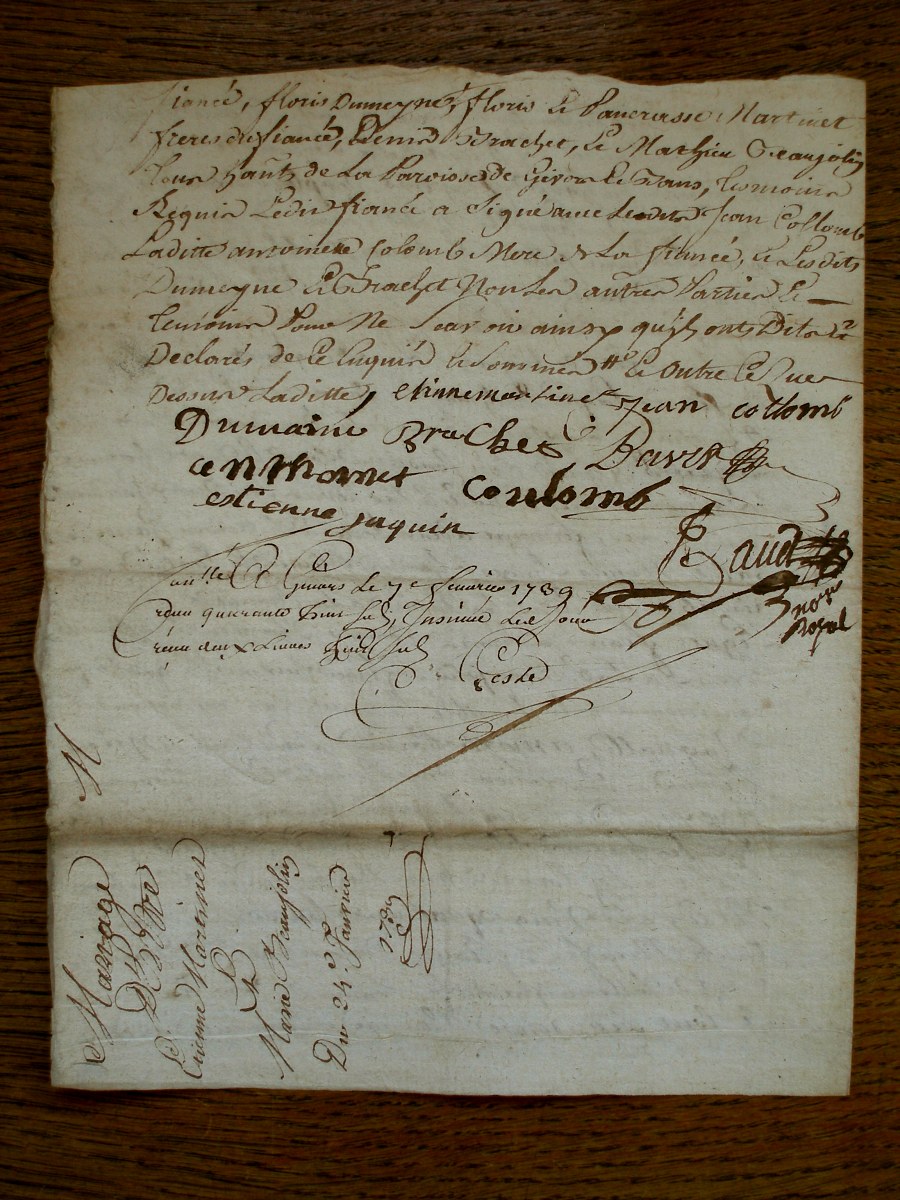 fiancé, floris Dumeyne, floris & Pancrasse Martinet
freres du fiancé, Denis Brachet, & Mathieu Beaujolin
tous habts de La Paroisse de Givors & Bans, temoins
Requis Ledit fiancé a Signé avec Lesdits Jean Collomb
Laditte antoinette Colomb Mere de La fiancée, & Lesdits
Dumeyne & Brachet Non Les autres Parties &
temoins Pour Ne Scavoir ainsy qu'ils ont Dit &
Declarés de ce Enquis & Sommés & outre ce que
Dessus Laditte, etinnemartinet jean collomb
Dumaine Brachet
anthoinet Coulomb
estienne jaquin
Gaudt
Conllé à Givors Le 7e fevrier 1789
reçu quarante huit sols, Insinué Led. Jour
reçu deux Livres huit sols
nore
Royal
M
Mariage
D'Entre
Etienne Martinet
&
Marie Beaujolin
Du 24e Janvier
1789